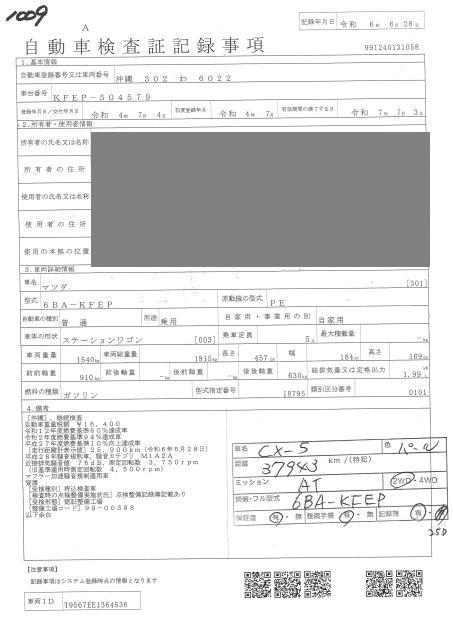 1009
A
記録年月日 令和 6年 6月28日
自動車検査証記録事項
991240131058
1.基本情報
自動車登録番号又は車両番号 沖縄 302 わ 6022
車台番号 KFEP-504579
登録年月日/交付年月日 令和 4年 7月 4日 初度登録年月 令和 4年 7月 有効期間の満了する日 令和 7年 7月 3日
2.所有者・使用者情報
所有者の氏名又は名称
所有者の住所
使用者の氏名又は名称
使用者の住所
使用の本拠の位置
3.車両詳細情報
車名 マツダ [301]
型式 6BA-KFEP 原動機の型式 PE
自動車の種別 普通 用途 乗用 自家用・事業用の別 自家用
車体の形状 ステーションワゴン [003] 乗車定員 5人 最大積載量 -kg
車両重量 1540kg 車両総重量 1815kg 長さ 457cm 幅 184cm 高さ 169cm
前前軸重 910kg 前後軸重 -kg 後前軸重 -kg 後後軸重 630kg 総排気量又は定格出力 1.99
燃料の種類 ガソリン 型式指定番号 18795 類別区分番号 0101
4.備考
[沖縄], 継続検査
自動車重量税額 ¥16,400
令和12年度燃費基準60%達成車
令和2年度燃費基準94%達成車
平成27年度燃費基準10%向上達成車
[走行距離計表示値] 25,900km (令和6年6月28日)
平成28年騒音規制車, 騒音カテゴリ M1A2A
近接排気騒音値 78dB, 測定回転数 3,750rpm
(旧基準適用時測定回転数 4,500rpm)
マフラー加速騒音規制適用車
[受検種別] 持込検査車
[検査時の点検整備実施状況] 点検整備記録簿記載あり
[受検形態] 認証整備工場
[整備工場コード] 99-00388
以下余白
車名 CX-5 色 パール
距離 37943 km/(特記)
ミッション AT 2WD・4WD
類別・フル型式 6BA-KFEP
保証書 有・無 整備手帳 有・無 記録簿 有・無
25D
【注意事項】
記録事項はシステム登録時点の情報となります
車両ID T9567EE1364536